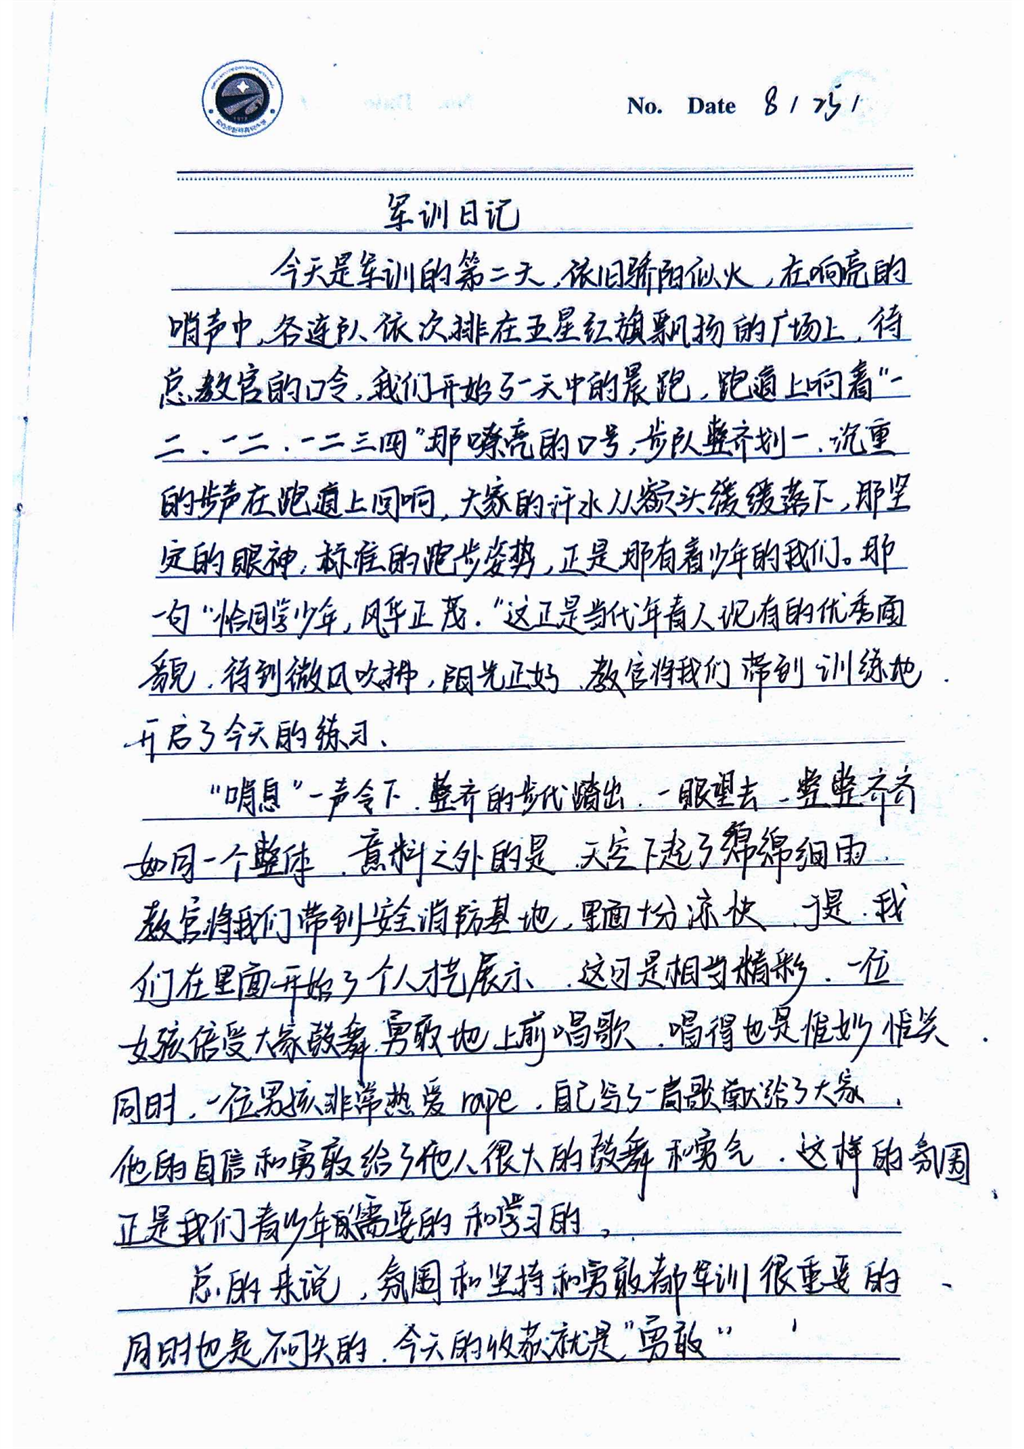 No. Date 8 / 25 /
军训日记
今天是军训的第二天,依旧骄阳似火,在响亮的
哨声中,各连队依次排在五星红旗飘扬的广场上,待
总教官的口令,我们开始了一天中的晨跑,跑道上响着"一
二、一二、一二三四"那嘹亮的口号,步队整齐划一、沉重
的步声在跑道上回响,大家的汗水从额头缓缓落下,那坚
定的眼神,标准的跑步姿势,正是那有着少年的我们。那
一句"恰同学少年,风华正茂."这正是当代年青人现有的优秀面
貌.待到微风吹拂,阳光正好、教官将我们带到训练地.
开启了今天的练习、
"哨息"一声令下.整齐的步伐踏出.一眼望去、整整齐齐
如同一个整体、意料之外的是、天空下起了绵绵细雨.
教官将我们带到安全消防基地,里面十分凉快、于是.我
们在里面开始了个人才艺展示、这可是相当精彩.一位
女孩倍受大家鼓舞.勇敢地上前唱歌、唱得也是惟妙惟笑.
同时.一位男孩非常热爱rape.自己写了一首歌献给了大家、
他的自信和勇敢给了他人很大的鼓舞和勇气.这样的氛围、
正是我们青少年所需要的和学习的。
总的来说,氛围和坚持和勇敢都军训很重要的、
同时也是不可失的.今天的收获就是"勇敢"